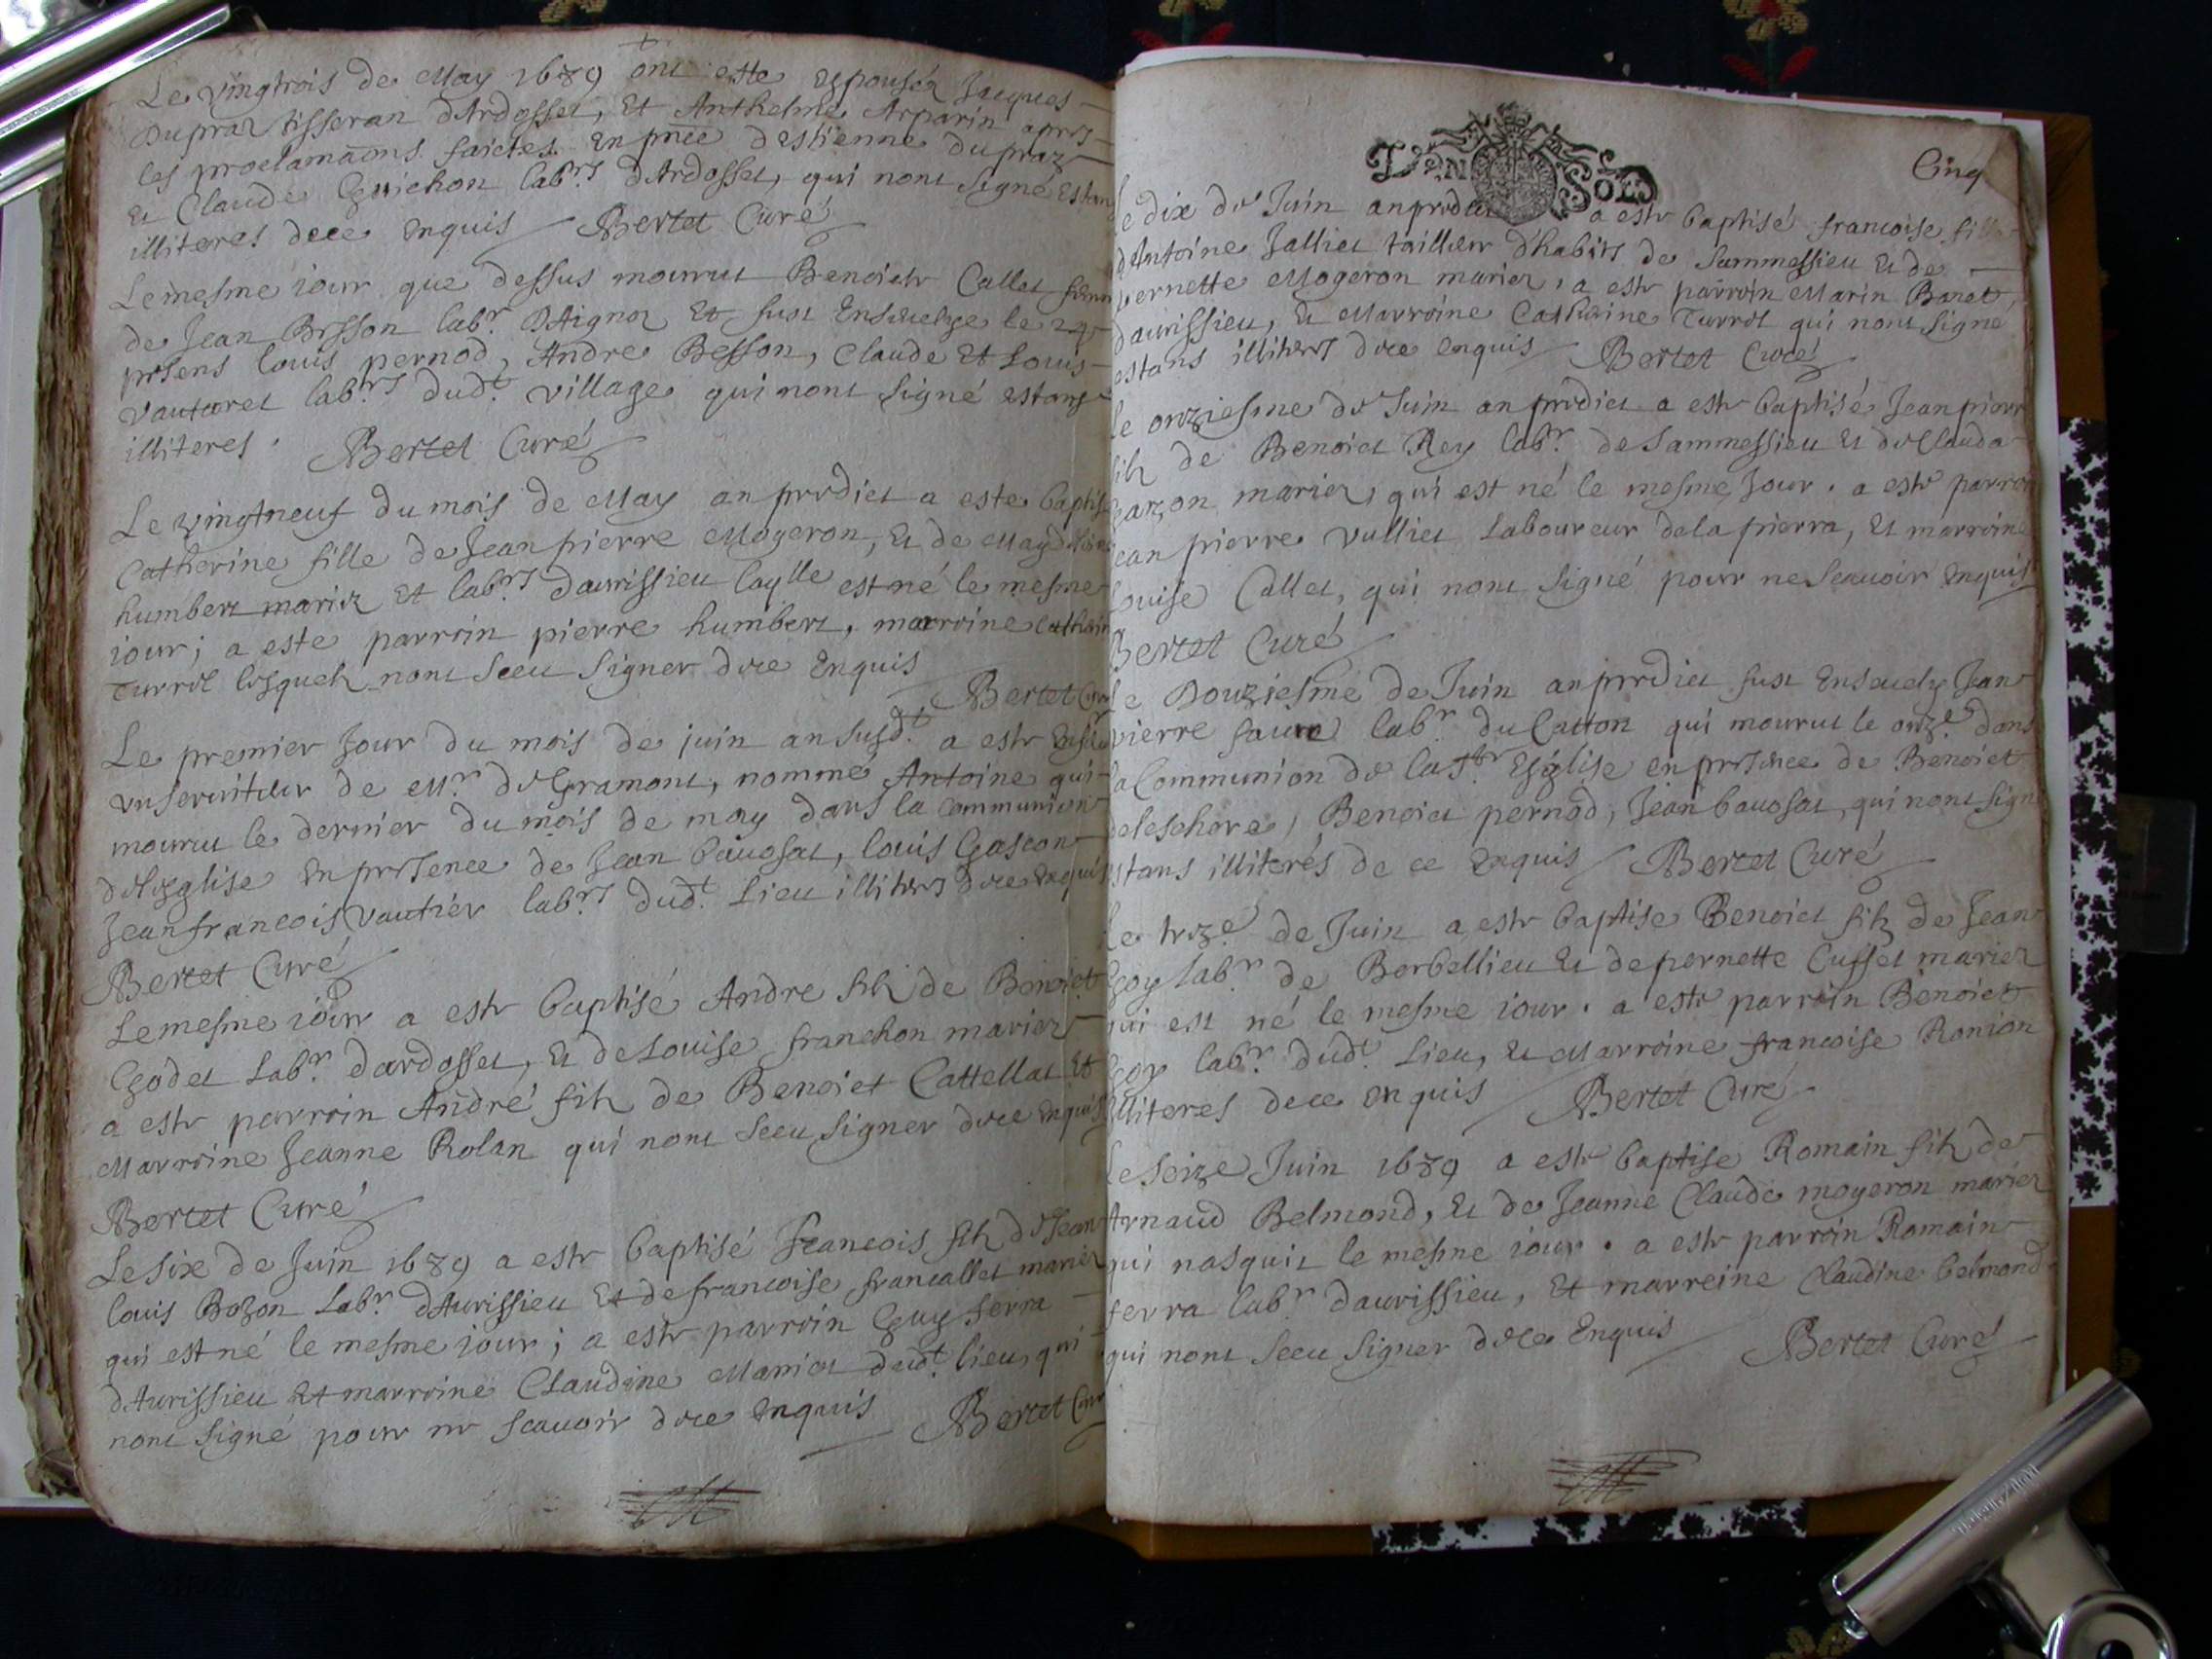 Le vingtrois de May 1689 ont este espousez Jacques
Dupraz tisseran d'Ardosset, et Anthelme Arparin apres
les proclamaons faictes en pnce d'Estienne dupraz
et Claude Guichon labrs d'Ardosset, qui nont signé estan
illiteres dece enquis Bertet Curé
Le mesme iour que dessus mourut Benoicte Callet
de Jean Besson labr D'Aignoz et fust Ensevelye le 24e
presens Louis pernod, Andre Besson, Claude et Louis
Vautaret labrs dudt village qui nont signé estans
illiteres. Bertet Curé
Le vingtneuf du mois de May an predict a este baptisé
Catherine fille de Jean pierre Mogeron, et de
humbert mariez et labrs daurissieu laqlle est né le mesme
iour; a este parroin pierre humbert, marroine Catherine
Turrel lesquelz nont sceu signer dece enquis
Bertet Curé
Le premier Jour du mois de juin an susdt a este
un serviteur de Mr de Gramont, nommé Antoine qui
mourut le dernier du mois de may dans la communion
de l'esglise en presence de Jean bauosat, louis Gascon
Jean francois Vautier labrs dudt Lieu illiteres dece enquis
Bertet Curé
Le mesme iour a este baptisé Andre filz de Benoict
Godet Labr dardosset, et de Louise franchon mariez
a este parroin André filz de Benoict Cattellat et
Marroine Jeanne Rolan qui nont sceu signer dece enquis
Bertet Curé
Le six de Juin 1689 a este baptisé Francois filz de Jean
louis Bozon Labr d'Aurissieu et de francoise francallet mariez
qui est né le mesme iour; a este parroin Guy ferra
d'Aurissieu et marroine Claudine Maniet dudt lieu, qui
nont signé pour ne scauoir dece enquis Bertet Curé
Cinq
VN SOL
le dix de Juin an predict a este baptisé francoise fille
d'Antoine Jalliet tailleur d'habits de Sammessieu et de
pernette Mogeron mariez, a este parroin Marin Baret
daurissieu, et Marroine Catherine Turrel qui nont signé
estans illiteres dece enquis Bertet Curé
le onziesme de Juin an predict a este baptisé Jean pierre
filz de Benoict Rey labr de Sammessieu et de Clauda
garçon mariez, qui est né le mesme Jour. a este parroin
Jean pierre Vulliet Laboureur de la pierra, et marroine
Louise Callet, qui nont signé pour ne scauoir enquis
Bertet Curé
Le Douziesme de Juin an predict fust Enseuely Jean
pierre faure labr du Catton qui mourut le onze dans
la Communion de la Ste Esglise en presence de Benoict
deleschere, Benoict pernod, Jean bauosat, qui nont signé
estans illiterés de ce enquis Bertet Curé
Le treze de Juin a este baptise Benoict filz de Jean
Goy labr de Borbellieu et de pernette Cusset mariez
qui est né le mesme iour. a este parroin Benoict
Goy labr dudt Lieu, et Marroine francoise Ronion
illiteres dece enquis Bertet Curé
Le seize Juin 1689 a este baptise Romain filz de
Arnaud Belmond, et de Jeanne Claude mogeron mariez
qui nasquit le mesme iour. a este parroin Romain
ferra labr daurissieu, et marreine Claudine belmond
qui nont sceu signer dece Enquis Bertet Curé